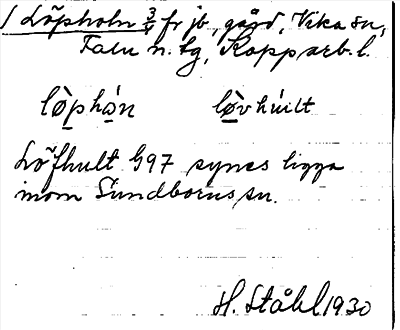 1 Löpholn 3/4 fr jb, gård, Vika sn,
Falu n. tg, Kopparb. l.
lò̱phò̱n lò̱vhúılt
Löfhult G97 synes ligga
inom Sundborns sn.
H. Ståhl 1930